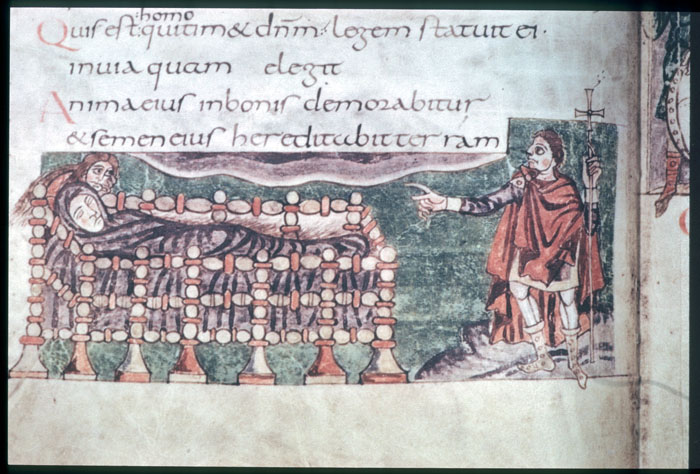 homo
Quis est quitim& dnm legem statuit ei
inuia quam elegit
Anima eius inbonis demorabitur
&semen eius hereditabit terram